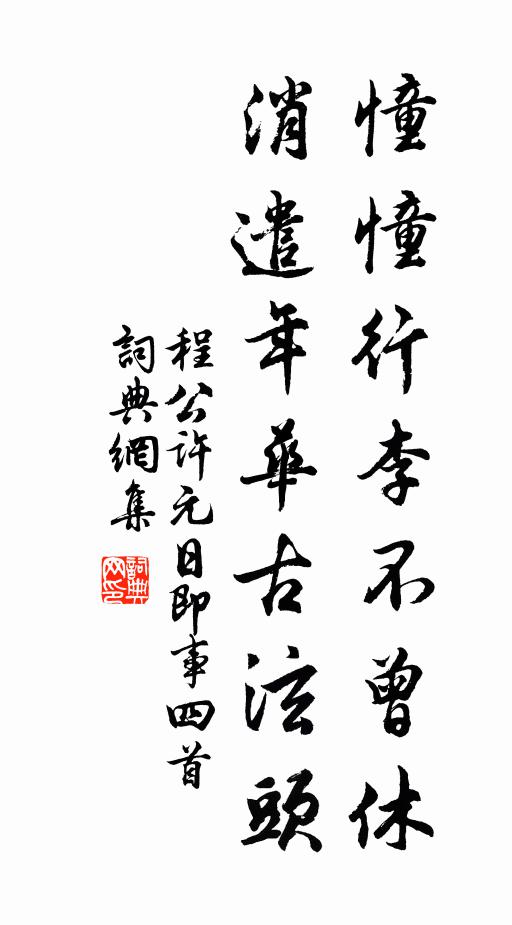 憧憧行李不曾休
消遣年華古泫頭
程公許元日即事四首
詞典網集
詞典网印